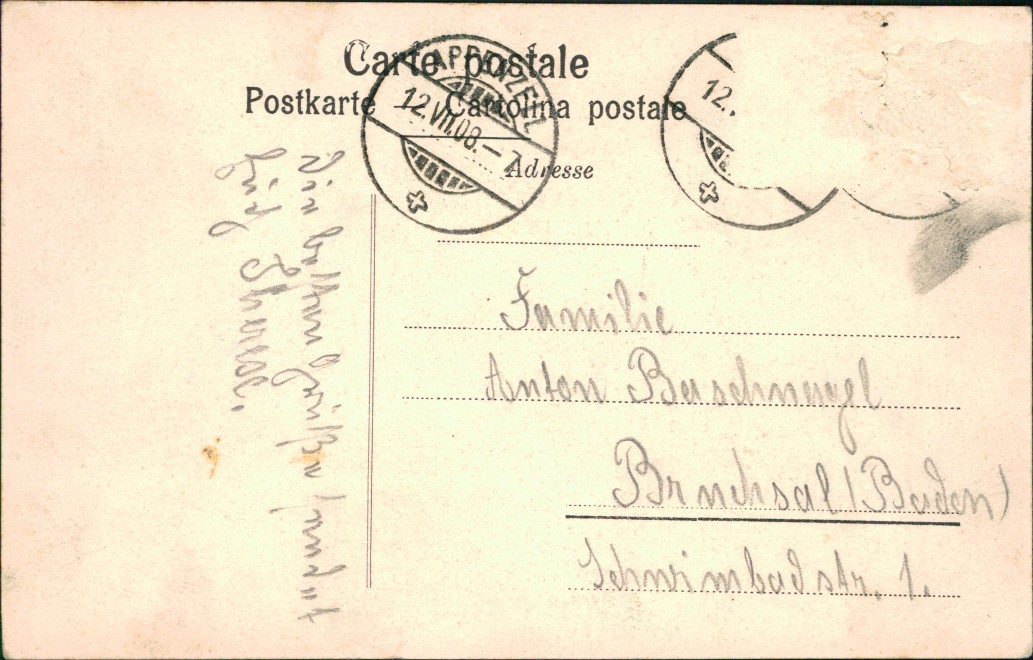 Carte postale
Postkarte — Cartolina postale
Adresse
APPENZELL
12.VII.08.–7
12.
Die besten Grüße sendet
Euch Therese.
Familie
Anton Baschnagel
Bruchsal (Baden)
Schwimbadstr. 1.